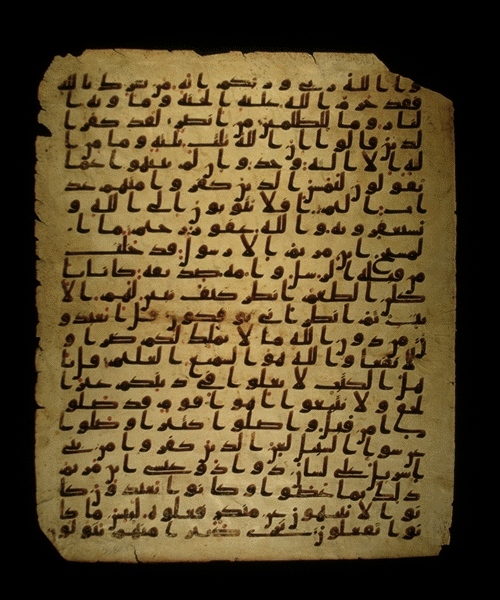 وا الله ربى وربكم انه من يشرك بالله
فقد حرم الله عليه الجنة وماويه ا
لنار وما للظلمين من انصر لقد كفر ا
لذين قالوا ان الله ثلث ثلثه وما من ا
له الا اله وحد وان لم ينتهوا عما
يقولون ليمسن الذين كفروا منهم عذ
اب اليم افلا يتوبون الى الله و
يستغفرونه والله غفور رحيم ما ا
لمسيح ابن مريم الا رسول قد خلت
من قبله الرسل وامه صديقه كانا يا
كلن الطعم انظر كيف نبين لهم الا
يت ثم انظر انى يوفكون قل اتعبدو
ن من دون الله ما لا يملك لكم ضرا و
لا نفعا والله هو السميع العليم قل يا
هل الكتب لا تغلوا فى دينكم غير ا
لحق ولا تتبعوا اهوا قوم قد ضلو
ا من قبل واضلوا كثيرا وضلوا
عن سوا السبيل لعن الذين كفروا من بنى
اسريل على لسن داود وعيسى ابن مريم
ذلك بما عصوا وكانوا يعتدون كا
نوا لا يتنهون عن منكر فعلوه لبيس ما كا
نوا يفعلون ترى كثيرا منهم يتولو